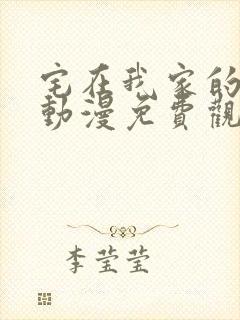 宅在我家的
動漫免費觀
李莹莹